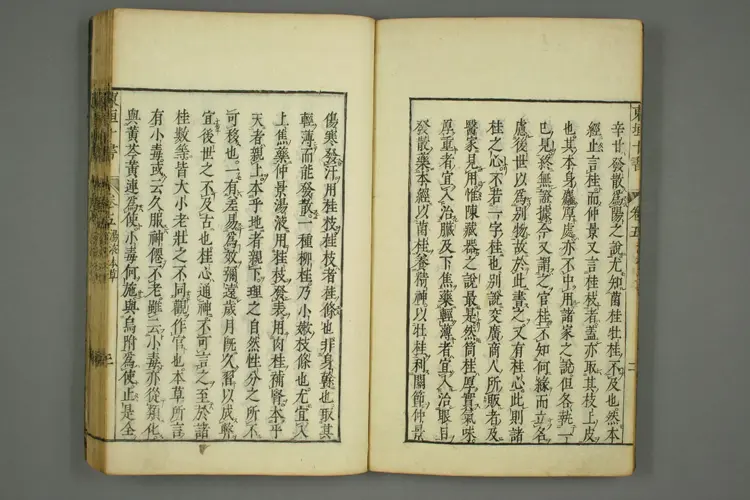 辛甘發散爲陽之說尤知菌桂牡桂不及也然本
經止言桂而仲景又言桂枝者蓋亦取其枝上皮
也其本身麤厚處亦不中用諸家之說但各執一
己見終無證據今又謂之官桂不知何緣而立名
慮後世以爲別物故於此書之又有桂心此則諸
桂之心不若一字桂也別說交廣商人所販者及
醫家見用惟陳藏器之說最是然筒桂厚實氣味
厚重者宜入治臟及下焦藥輕薄者宜入治眼目
發散藥本經以菌桂養精神以牡桂利關節仲景
傷寒發汗用桂枝桂枝者桂條也非身幹也取其
輕薄而能發散一種柳桂乃小嫩枝條也尤宜入
上焦藥仲景湯液用桂枝發表用肉桂補腎本乎
天者親上本乎地者親下理之自然性分之所不
可移也一有差易爲效彌遠歲月旣久習以成弊
宜後世之不及古也桂心通神不可言之至於諸
桂數等皆大小老壯之不同觀作官也本草所言
有小毒或云久服神僊不老雖云小毒亦從類化
與黃芩黃連爲使小毒何施與烏附爲使止是全
東垣十書
卷五
二
東垣十書